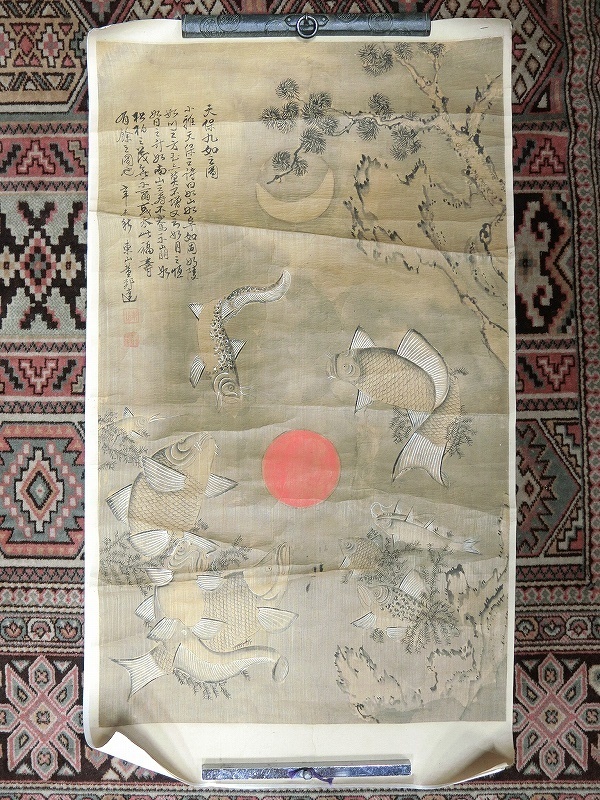 天保九如之圖
小雅天保之詩曰如山如阜如岡如陵
如川之方至以莫不增又曰如月之恒
如日之升如南山之壽不騫不崩如
松柏之茂無不爾或承此福壽
有餘之圖也 辛 秋 東山董邦達